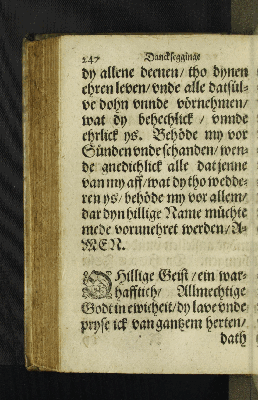 247 Dancksegginge
dy allene deenen/ tho dynen
ehren leven/ vnde alle datsül-
ve dohn vnnde vörnehmen/
wat dy behechlick / vnnde
ehrlick ys. Behöde my vor
Sünden vnde schanden/ wen-
de gnedichlick alle dat jenne
van my aff/ wat dy tho wedde-
ren ys/ behöde my vor allem/
dar dyn hillige Name müchte
mede vorunehret werden/ A-
MEN.
O Hillige Geist / ein war-
hafftich/ Allmechtige
Godt in ewicheit/ dy lave vnde
pryse ick van gantzem herten/
dath